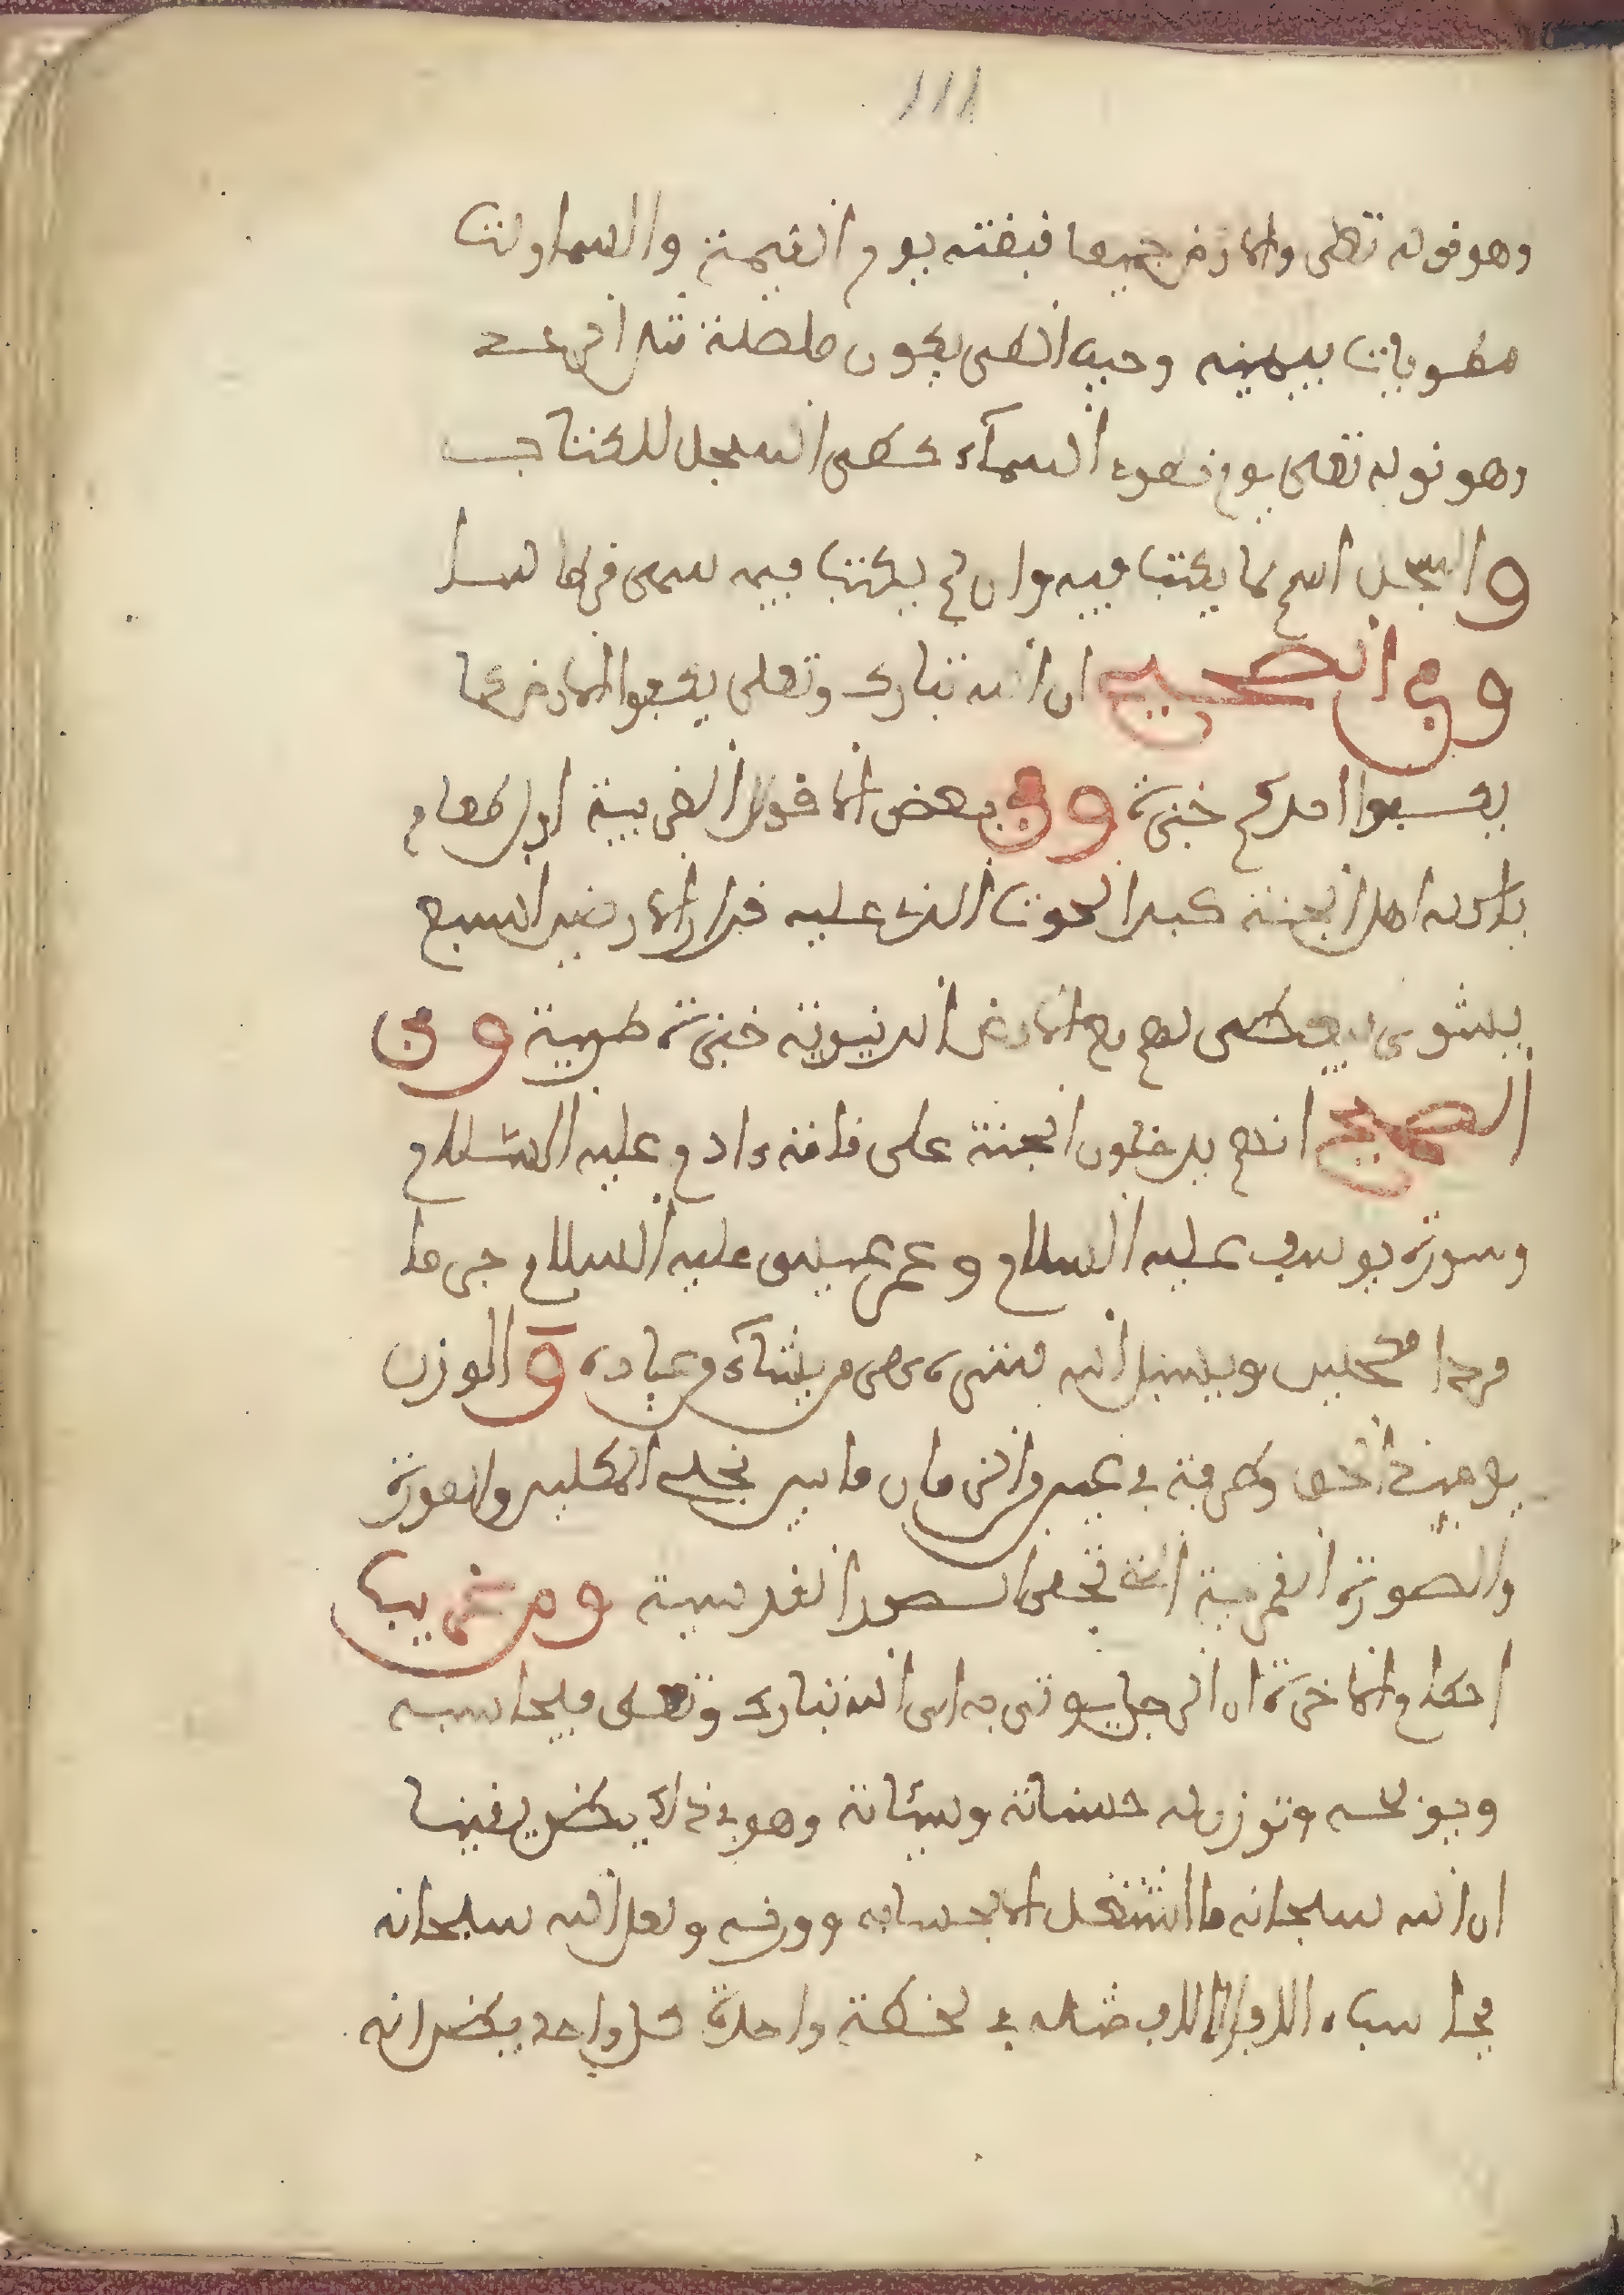 ١١١
وهو قوله تعلى والارض جميعا قبضته يوم القيمة والسماوات
مطويات بيمينه وحيه الطى يكون صلصلة
وهو قوله تعلى يوم نطوى السماء كطى السجل للكتاب
والسجل اسم لما يكتب فيه وان لم يكتب فيه سمى قرطاسا
وفى الصحيح ان الله تبارك وتعلى يكفوا الارض كما
يكفوا احدكم خبزة وفى بعض الاقوال الغريبة اول طعام
ياكله اهل الجنة كبد الحوت الذى عليه قرار الارضين السبع
يشوى يعطى لهم مع الارض الدنيوية خبزة طيبة وفى
الصحيح انهم يدخلون الجنة على قامة ءادم عليه السلام
وسورة يوسف عليه السلام وعمر عيسى عليه السلام جردا
مردا مكحلين ويسبل الله ستره على من يشاء من عباده والوزن
يومئذ الحق وهى فتة فى عمير والزمان ما بين تجلى والصورة
والصورة القمرية التى تجلى الصور القدسية ومن غريب
احكام الاخرة ان الرجل يوتى به الى الله تبارك وتعلى فيحاسبه
ويوبخه وتوزن له حسناته وسيئاته وهو فى ذلك يظن يقينا
ان الله سبحانه ما اشتغل الا بحسابه ووزنه ولعل الله سبحانه
يحاسب الاف الالاف مثله فى لحظة واحدة كل واحد يظن انه